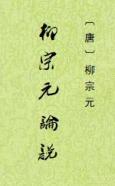 〔唐〕柳宗元
柳宗元論說